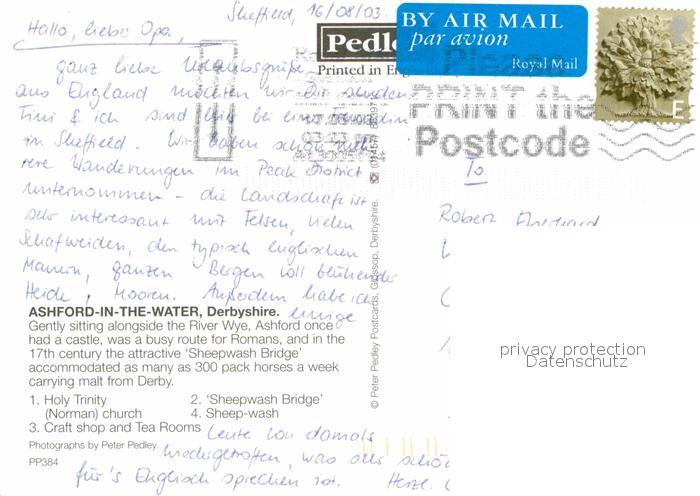 Sheffield, 16/08/03
Hallo, lieber Opa,
ganz liebe Urlaubsgrüße
aus England möchten wir Dir senden
Tini & ich sind hier bei
in Sheffield. Wir haben schon meh-
rere Wanderungen im Peak District
unternommen – die Landschaft ist
sehr interessant mit Felsen, vielen
Schafweiden, den typisch englischen
Mauern, ganzen Bergen voll blühender
Heide, Mooren. Außerdem habe ich
einige
Leute von damals
wiedergetroffen, was sehr schön
für's Englisch sprechen ist. Herzl.
Pedley
Printed in Eng
BY AIR MAIL
par avion
Royal Mail
E
Please
PRINT the
Postcode
To
Robert
ASHFORD-IN-THE-WATER, Derbyshire.
Gently sitting alongside the River Wye, Ashford once
had a castle, was a busy route for Romans, and in the
17th century the attractive 'Sheepwash Bridge'
accommodated as many as 300 pack horses a week
carrying malt from Derby.
1. Holy Trinity (Norman) church
2. 'Sheepwash Bridge'
3. Craft shop and Tea Rooms
4. Sheep-wash
Photographs by Peter Pedley.
PP384
© Peter Pedley Postcards, Glossop, Derbyshire.
privacy protection
Datenschutz